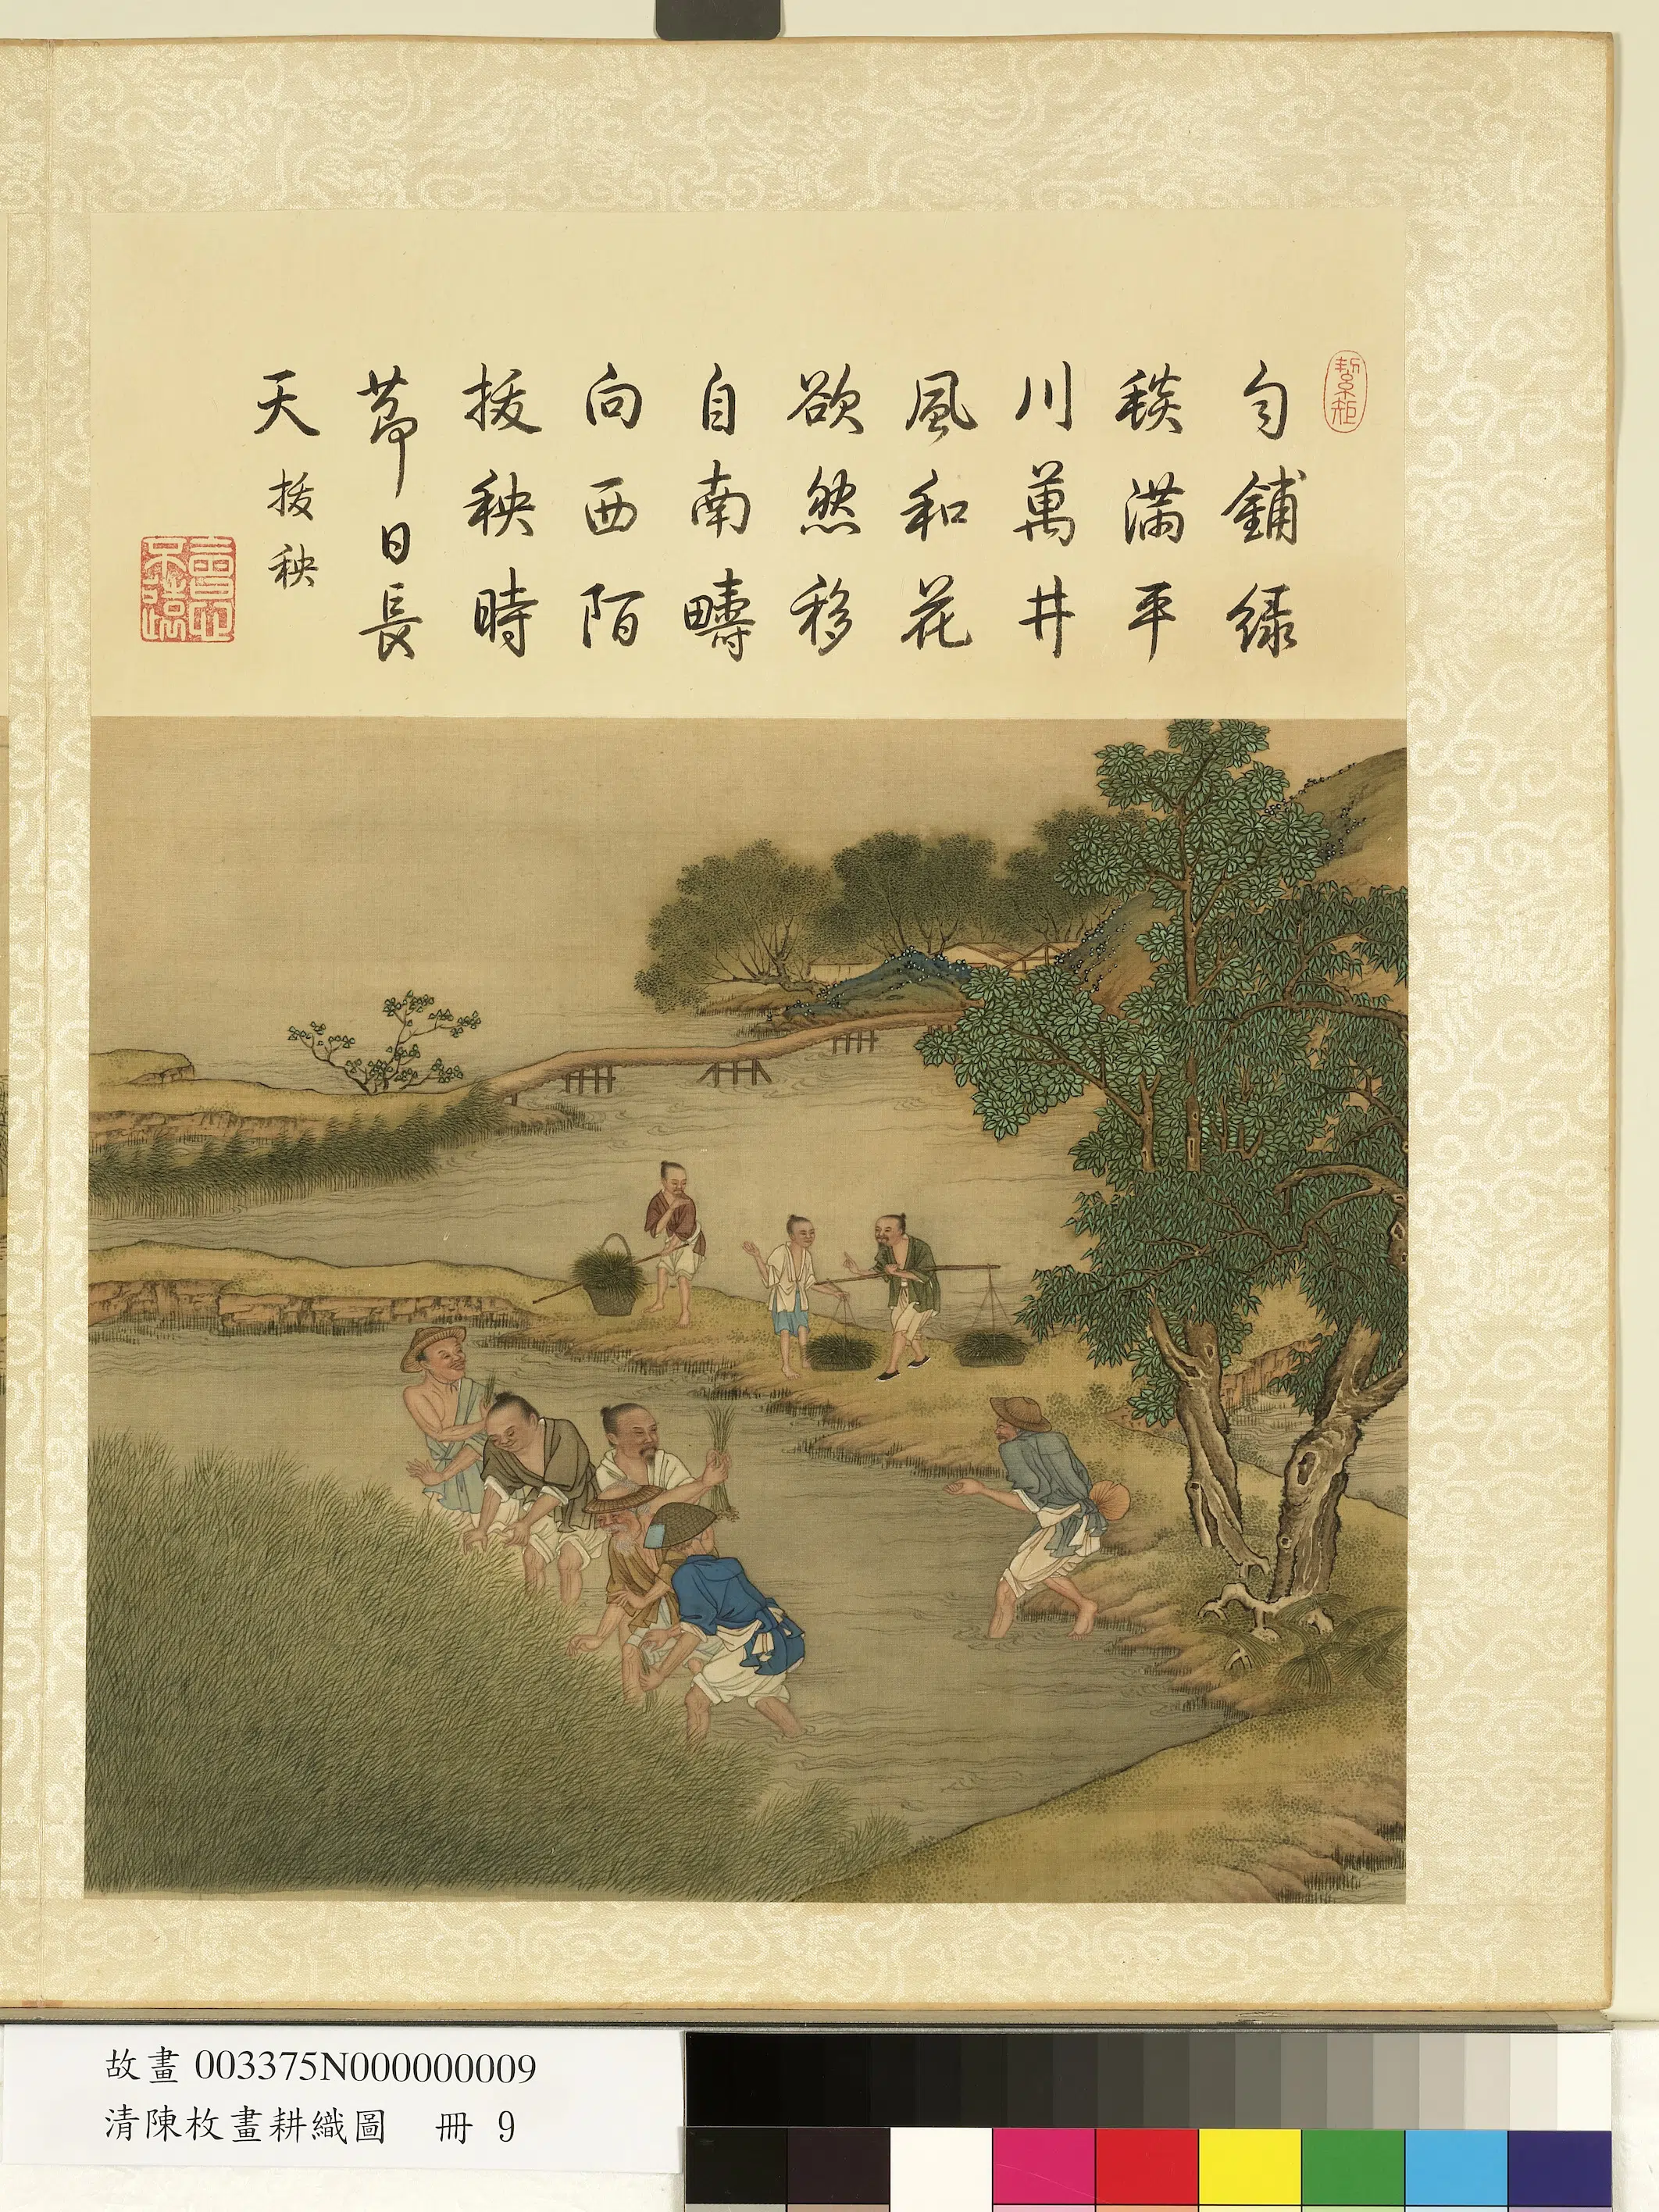 絜矩
勻鋪綠
毯滿平
川萬井
風和花
欲然移
自南疇
向西陌
拔秧時
節日長
天 拔秧
會心不遠
故畫 003375N000000009
清陳枚畫耕織圖 冊 9